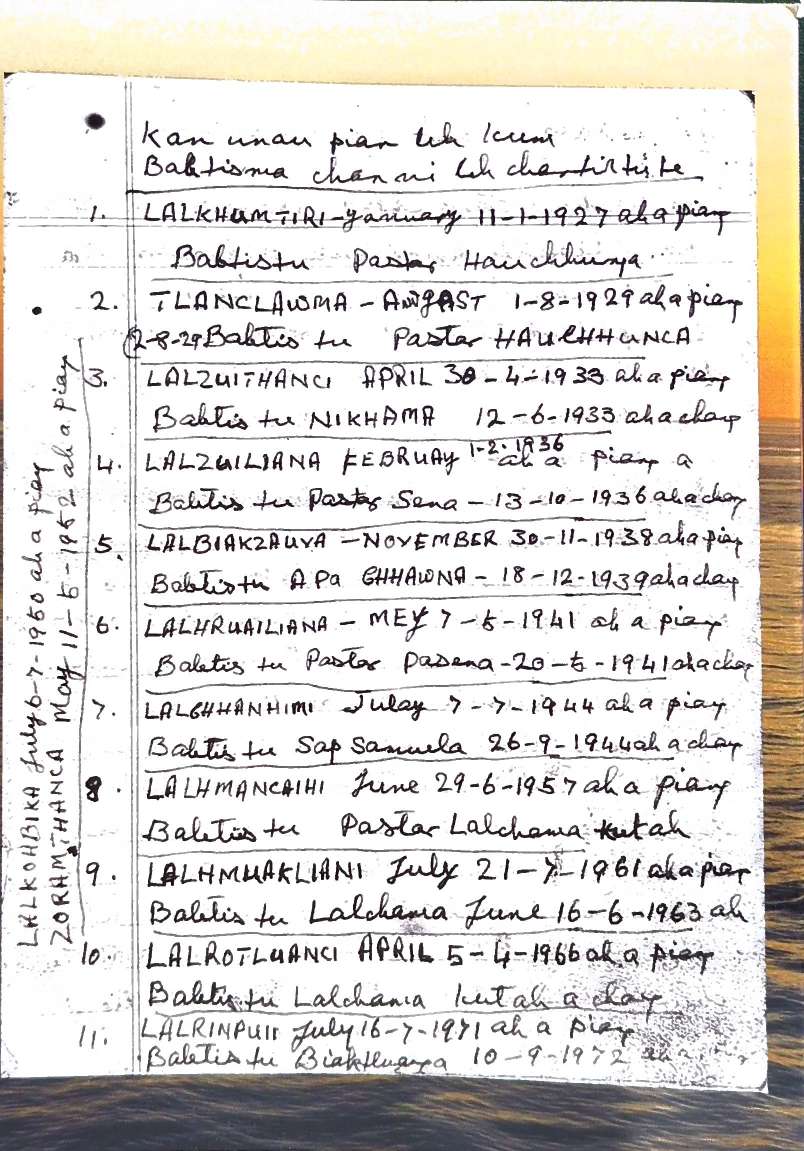 Kan unau pian leh kum
Babtisma chan ni leh chantirtu te
1. LALKHUMTIRI - January 11-1-1927 ah a piang
Babtis tu Pastar Hauchhunga
2. TLANCLAWMA - AUGAST 1-8-1929 ah a piang
2-8-29 Babtis tu Pastar HAUCHHUNCA
3. LALZUITHANCI APRIL 30-4-1933 ah a piang
Babtis tu NIKHAMA 12-6-1933 ah a chang
4. LALZUILIANA FEBRUAY 1-2-1936 ah a piang a
Babtis tu Pastar Sena - 13-10-1936 ah a chang
5. LALBIAKZAUVA - NOVEMBER 30-11-1938 ah a piang
Babtis tu A Pa CHHAWNA - 18-12-1939 ah a chang
6. LALHRUAILIANA - MEY 7-5-1941 ah a piang
Babtis tu Pastar Pasena - 20-5-1941 ah a chang
7. LALCHHANHIMI Julay 7-7-1944 ah a piang
Babtis tu Sap Samuela 26-9-1944 ah a chang
8. LALHMANCAIHI June 29-6-1957 ah a piang
Babtis tu Pastar Lalchama kutah
9. LALHMUAKLIANI July 21-7-1961 ah a piang
Babtis tu Lalchama June 16-6-1963 ah
10. LALROTLUANCI APRIL 5-4-1966 ah a piang
Babtis tu Lalchama kutah a chang
11. LALRINPUII July 16-7-1971 ah a piang
Babtis tu Biakthuanga 10-9-1972 ah a
LALKOHBIKA July 6-7-1950 ah a piang
ZORAMTHANCA May 11-5-1952 ah a piang